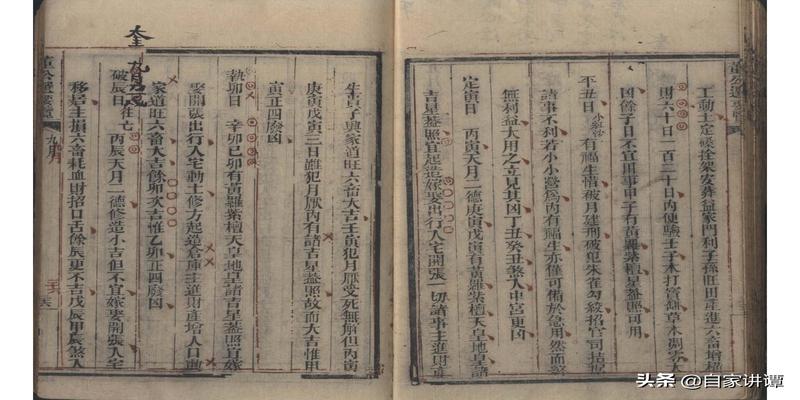 董公選要覽
工動土定磉拴架安葬益家門利子孫旺田產進六畜增橫
財六十日一百二十日內便驗壬子木打寶瓶草木凋零
凶餘子日不宜用事甲子有黃羅紫檀星蓋照可用
平丑日 小紅沙 有福生惜被月建刑破犯朱雀勾絞招官司
諸事不利若小小營為內有福生亦僅可備於急用然而終
無利益大用之立見其凶丁丑癸丑煞入中宮更凶
定寅日 丙寅天月二德庚寅戊寅有黃羅紫檀天皇地皇諸
吉星蓋照宜起造嫁娶出行入宅開張一切諸事主進財產
生貴子興家道旺六畜大吉壬寅犯月厭受死無解但丙寅
庚寅戊寅三日雖犯月厭內有諸吉星蓋照故而大吉惟甲
寅正四廢凶
執卯日 辛卯己卯有黃羅紫檀天皇地皇諸吉星蓋照宜嫁
娶開張出行入宅動土修方起造倉庫主進財產增人口
家道旺六畜大吉餘卯次吉惟乙卯正四廢凶
破辰日 往亡 丙辰天月二德修造小吉但不宜嫁娶開張入宅
移居主損六畜耗血財招口舌餘辰更不吉戊辰甲辰煞入
董公選要覽 九月
九月
头条 @自家讲谭